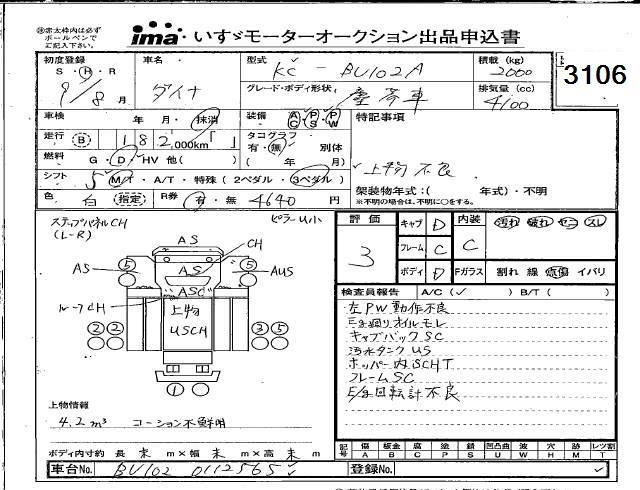 ※赤太枠内は必ず
ボールペンで
ご記入下さい。
ima いすゞモーターオークション出品申込書
3106
初度登録
S・H・R
9/8月
車名
ダイナ
型式
KC-BU102A
積載(kg)
2000
グレード・ボディ形状
塵芥車
排気量(cc)
4100
車検 年・月・抹消
装備 AC・PS・PW
特記事項
上物不良
走行 B 182,000km「 」
タコグラフ
有・無 別体
( 年 月)
燃料 G・D・HV 他( )
シフト 5 M/T・A/T・特殊(2ペダル・3ペダル)
架装物年式:( 年式)・不明
※不明の場合は、不明に○をする。
色 白 (指定) R券 有・無 4640円
ステップパネルCH
(L-R)
ピラーU小
AS
CH
AS
AS
AUS
ASC
ルーフCH
上物
USCH
5 5
2 2 3 5
1
評価
3
キャブ D
フレーム C
ボディ D
内装 C
汚れ 破れ ヤニ スレ
Fガラス 割れ 線 飛傷 イバリ
検査員報告 A/C(✓) B/T( )
左PW動作不良
E/g廻りオイルモレ
キャブバックSC
汚水タンクUS
ホッパー内SCHT
フレームSC
E/g回転計不良
上物情報
4.2m³ コーション不鮮明
ボディ内寸約 長 未 m×幅 未 m×高 未 m
記号 傷 板金 腐 塗 錆 凹凸曲 波 穴 跡 レツ割
A B C P S U W H M T
車台No. BU102 0112565
登録No.